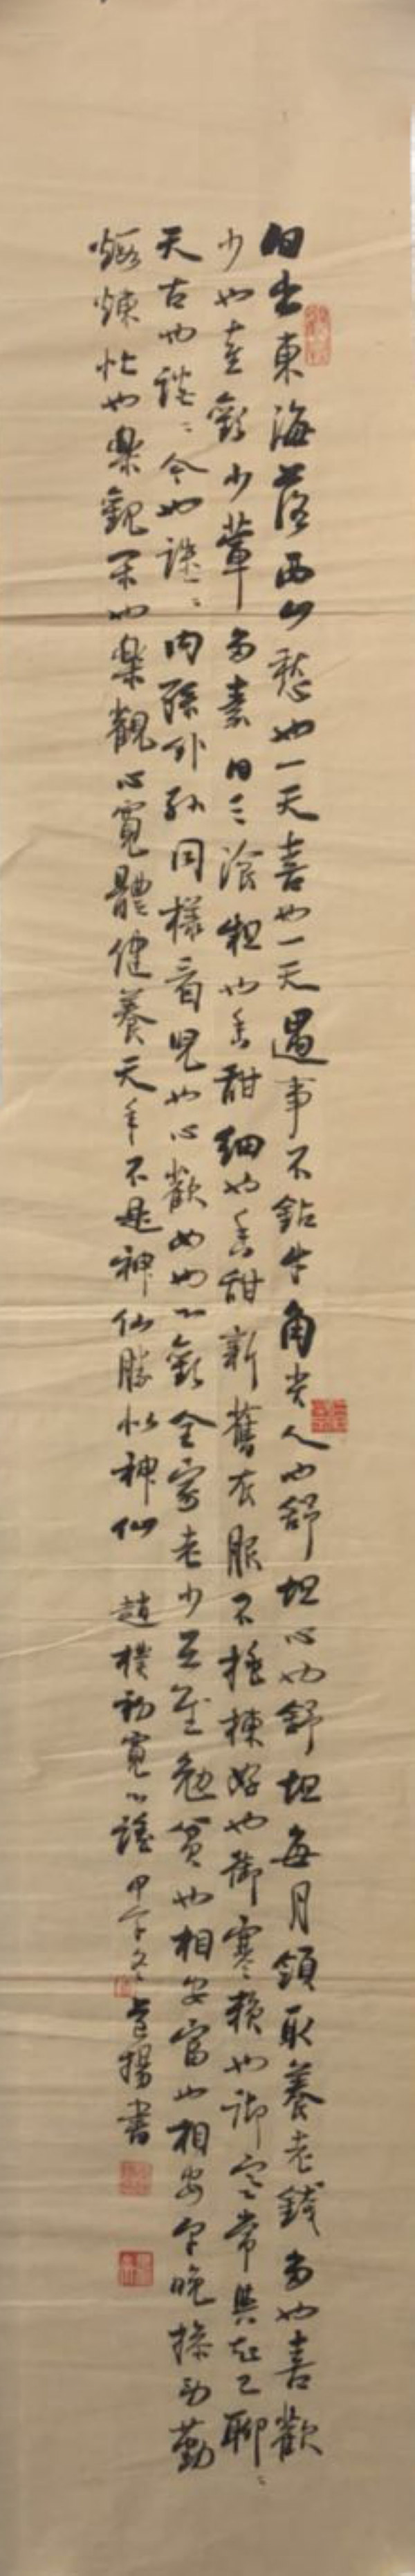 日出東海落西山愁也一天喜也一天遇事不鈷牛角尖人也舒坦心也舒坦每月領取養老錢多也喜歡
少也喜歡少葷多素日三飡粗也香甜細也香甜新舊衣服不挑揀好也御寒賴也御寒常與知己聊聊
天古也談談今也談談內孫外孫同樣看兒也心歡女也心歡全家老少互慰勉貧也相安富也相安早晚操勞勤
鍛煉忙也樂觀閑也樂觀心寬體健養天年不是神仙勝似神仙 趙樸初寬心謠 甲子冬 揚書